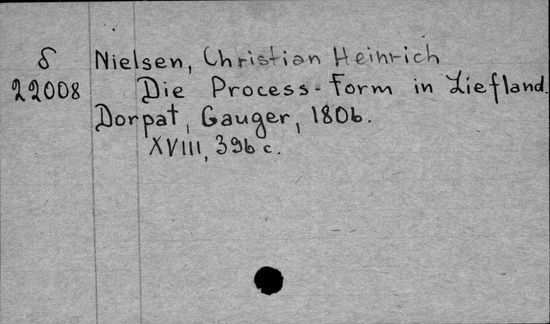 δ Nielsen, Christian Heinrich
22008 Die Process-Form in Liefland.
Dorpat, Gauger, 1806.
XVIII, 396 c.